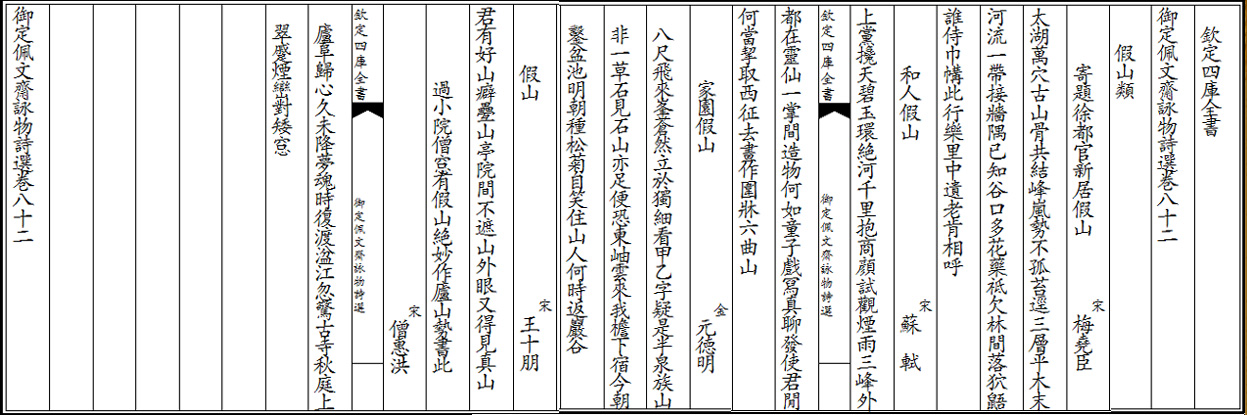 欽定四庫全書
御定佩文齋詠物詩選巻八十二
假山類
寄題徐都官新居假山 宋 梅堯臣
太湖萬穴古山骨共結峰嵐勢不孤苔逕三層平木末
河流一帶接牆隅已知谷口多花藥祗欠林間落狖鼯
誰侍巾構此行樂里中遺老肯相呼
和人假山 宋 蘇軾
上黨攙天碧玉環絶河千里抱商顔試觀煙雨三峰外
欽定四庫全書 御定佩文齋詠物詩選
都在靈仙一掌間造物何如童子戲冩真聊發使君閒
何當挈取西征去畫作圍牀六曲山
家園假山 金 元德明
八尺飛來峯蒼然立於獨細看甲乙字疑是半泉族山
非一草石見石山亦足便恐東岫雲來我檐下宿今朝
鑿盆池明朝種松菊自笑住山人何時返巖谷
假山 宋 王十朋
君有好山癖壘山亭院間不遮山外眼又得見真山
過小院僧窓有假山絶妙作廬山勢書此
宋 僧惠洪
欽定四庫全書 御定佩文齋詠物詩選
廬阜歸心久未降夢魂時復渡湓江忽驚古寺秋庭上
翠蹙煙巒對矮窓
御定佩文齋詠物詩選巻八十二